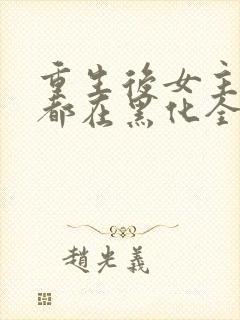 重生後女主
都在黑化全
趙光義